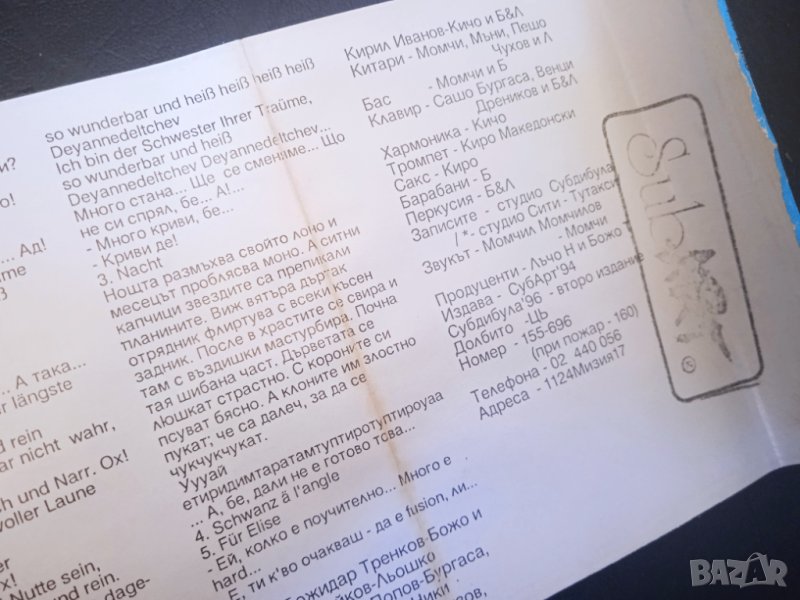 и?
о!
... Ад!
äume
ß
... А така...
r längste
d rein
ar nicht wahr,
ch und Narr. Ox!
voller Laune
er
Ox!
Nutte sein,
und rein.
dage-
so wunderbar und heiß heiß heiß heiß
Deyannedeltchev
Ich bin der Schwester Ihrer Träume,
so wunderbar und heiß
Deyannedeltchev Deyannedeltchev...
Много стана... Ще се сменяме... Що
не си спрял, бе... А!...
- Много криви, бе...
- Криви де!
3. Nacht
Нощта размъхва свойто лоно и
месецът проблясва моно. А ситни
капчици звездите са препикали
планините. Виж вятъра дъртак
отрядник флиртува с всеки късен
задник. После в храстите се свира и
там с въздишки мастурбира. Почна
тая шибана част. Дърветата се
люшкат страстно. С короните си
псуват бясно. А клоните им злостно
пукат; че са далеч, за да се
чукчукчукат.
Уууай
етиридимтаратамтуптиротуптироуаа
... А, бе, дали не е готово това...
4. Schwanz ä l'angle
5. Für Elise
- Ей, колко е поучително... Много е
hard...
- Е, ти к'во очакваш - да е fusion, ли...
Божидар Тренков-Божо и
йков-Льошко
Попов-Бургаса,
Ники
Кирил Иванов-Кичо и Б&Л
Китари - Момчи, Мъни, Пешо
Чухов и Л
Бас - Момчи и Б
Клавир - Сашо Бургаса, Венци
Дреников и Б&Л
Хармоника - Кичо
Тромпет - Киро Македонски
Сакс - Киро
Барабани - Б
Перкусия - Б&Л
Записите - студио Субдибула
/*- студио Сити - Тутакси
Звукът - Момчил Момчилов
- Момчи
Продуценти - Лъчо Н и Божо Т
Издава - СубАрт'94
Субдибула'96 - второ издание
Долбито -ЦЬ
Номер - 155-696
(при пожар - 160)
Телефона - 02 440 056
Адреса - 1124Мизия17
Sub
ART
®
BAZAR